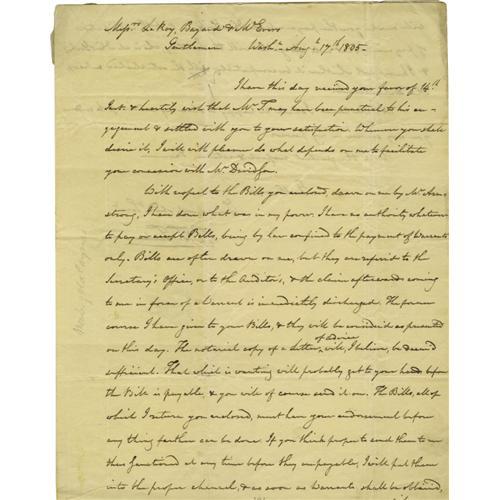 Messrs LeRoy, Bayard & McEvers
Gentlemen Washn Augt 17th 1805.
I have this day received your favor of 14th
Inst. & heartily wish that Mr T. may have been punctual to his en-
gagement & settled with you to your satisfaction. Whenever you shall
desire it, I will with pleasure do what depends on me to facilitate
your concession with Mr
With respect to the Bills you enclosed, drawn on me by Mr Arm-
strong, I have done what was in my power. I have no authority whatever
to pay or accept Bills, being by law confined to the payment of Warrants
only. Bills are often drawn on me, but they are referred to the
Secretary's Office, or to the Auditor's, & the claim afterwards coming
to me in form of a Warrant is immediately discharged. The former
course I have given to your Bills, & they will be considered as presented
on this day. The notarial copy of a letter of advice will, I believe, be deemed
sufficient. That which is wanting will probably get to your hands before
the Bill is payable, & you will of course send it on. The Bills, all of
which I return you enclosed, must have your endorsement before
any thing farther can be done. If you think proper to send them to me
thus at any time before they are payable, I will put them
into the proper channel, & as soon as Warrants shall be obtained,